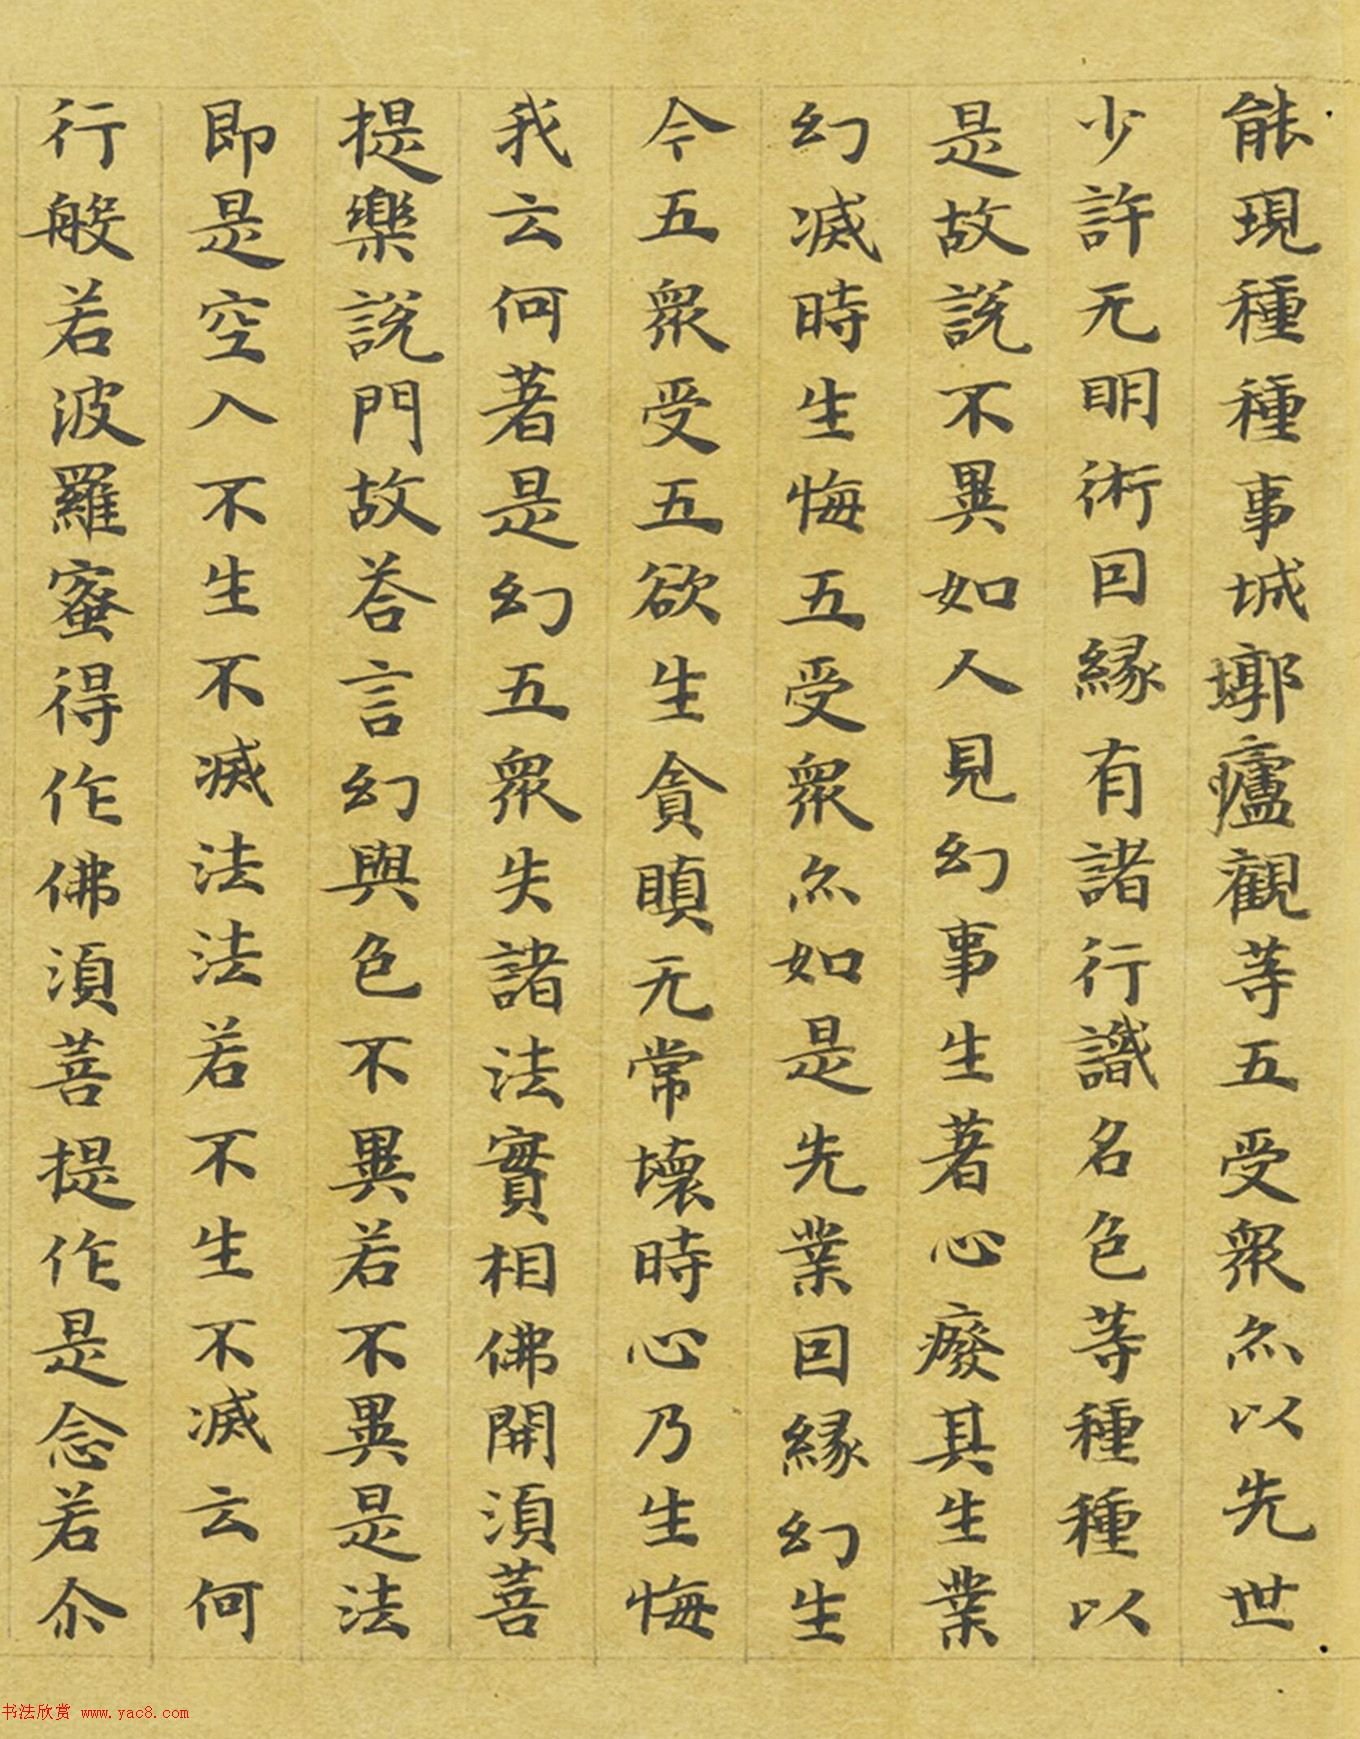 能現種種事城墎廬觀等五受衆亦以先世
少許无明術因緣有諸行識名色等種種以
是故說不異如人見幻事生著心癈其生業
幻滅時生悔五受衆亦如是先業因緣幻生
今五衆受五欲生貪瞋无常壞時心乃生悔
我云何著是幻五衆失諸法實相佛開須菩
提樂說門故荅言幻與色不異若不異是法
即是空入不生不滅法法若不生不滅云何
行般若波羅蜜得作佛須菩提作是念若尒
书法欣赏 www.yac8.com